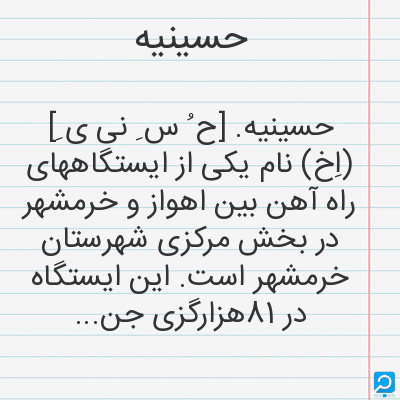 حسینیه
حسینیه. [ح ُ س ِ نی ی ِ]
(اِخ) نام یکی از ایستگاههای
راه آهن بین اهواز و خرمشهر
در بخش مرکزی شهرستان
خرمشهر است. این ایستگاه
در ۸۱هزارگزی جن...